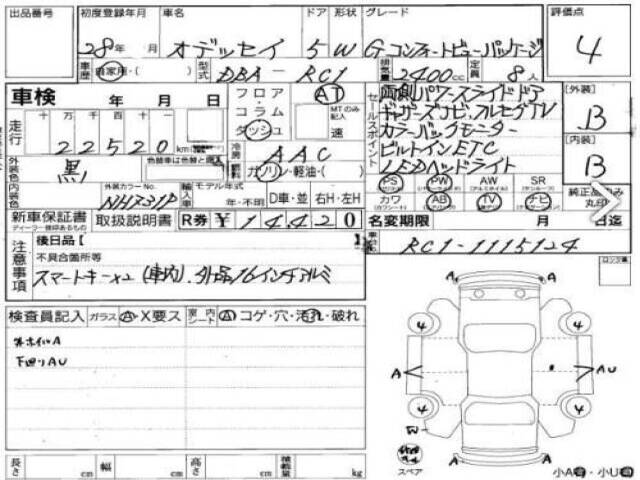 出品番号 初度登録年月 車名 ドア 形状 グレード 評価点
28年 月 オデッセイ 5 W G コンフォートビューパッケージ 4
車歴 自家用・( ) 型式 DBA - RC1 排気量 2400cc 定員 8人
車検 年 月 日 フロア・コラム・ダッシュ AT MTのみ記入 速
セールスポイント 両側パワースライドドア
ギャザーズナビ、フルセグTV
カラーバックモニター
ビルトインETC
LEDヘッドライト
[外装] B
[内装] B
走行 十 万 千 百 十 一
22520km
冷房 AAC
外装色 黒 ガソリン・軽油・( )
内装色 外装カラーNo. NH731P 輸入車 モデル年式 年・不明 D車・並 右H・左H
PS PW AW SR
カワ AB TV ナビ
純正品のみ丸印
新車保証書 取扱説明書 R券 ¥14,420 名変期限 月 日迄
ディーラー捺印あるもの
RC1-1115124
注意事項 後日品[
不具合箇所等
スマートキー×2 (車内)、外品16インチアルミ
ロックNo.
検査員記入 ガラス A・X要ス 室内シート A コゲ・穴・汚れ・破れ
ホイルA
下廻りAU
A A
4 4
A A AU
4 4
A A
スペア
小A 小U
長さ cm 幅 cm 高さ cm 積載量 kg